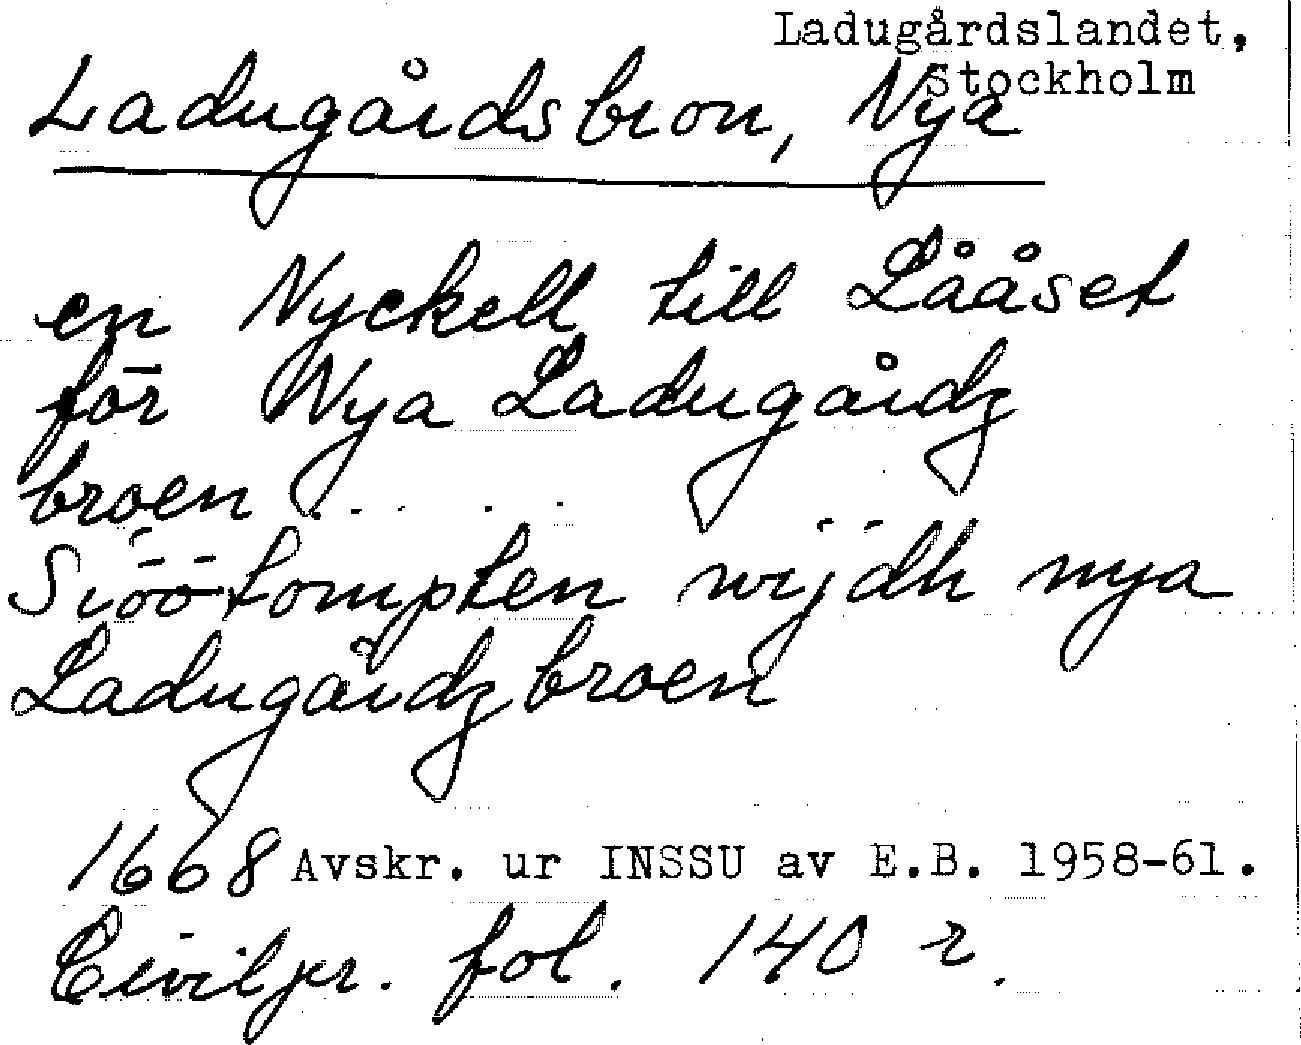 Ladugårdslandet,
Stockholm
Ladugårdsbron, Nya
en Nyckell till Lååset
för Nya Ladugårdz
broen . . . . .
Siöötompten wijdh nya
Ladugårdzbroen
1668 Avskr. ur INSSU av E.B. 1958-61.
Civiljr. fol. 140 r.